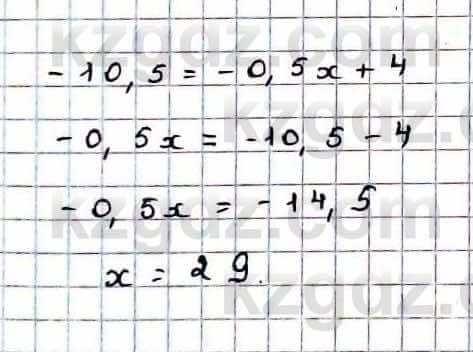 -10,5 = -0,5x + 4
-0,5x = -10,5 - 4
-0,5x = -14,5
x = 29.
kzgdz.com